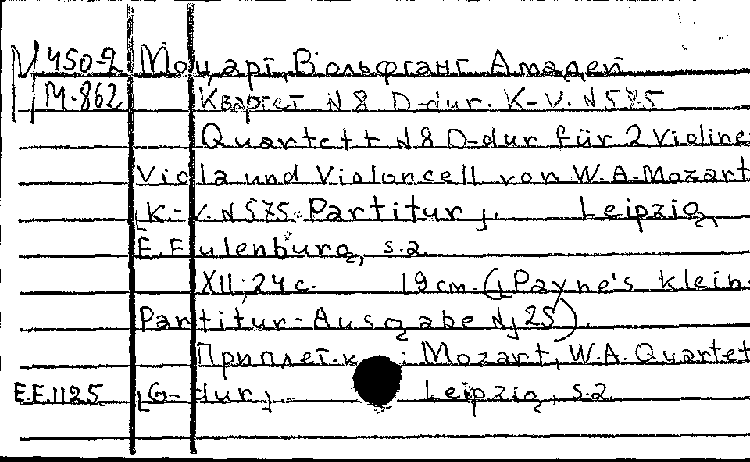 М 450-2 Моцарт, Вольфганг Амадей
М-862 Квартет N 8 D-dur. K-V. N 575
Quartett N 8 D-dur für 2 Violine
Viola und Violoncell von W.A. Mozart
[K.-V. N 575. Partitur]. Leipzig,
E. Eulenburg, s.a.
XII, 24 c. 19 cm. ([Payne's klein
Partitur-Ausgabe N] 25).
Приплет. к : Mozart, W.A. Quartet
E.E.1125 [G-dur]. Leipzig, s.a.